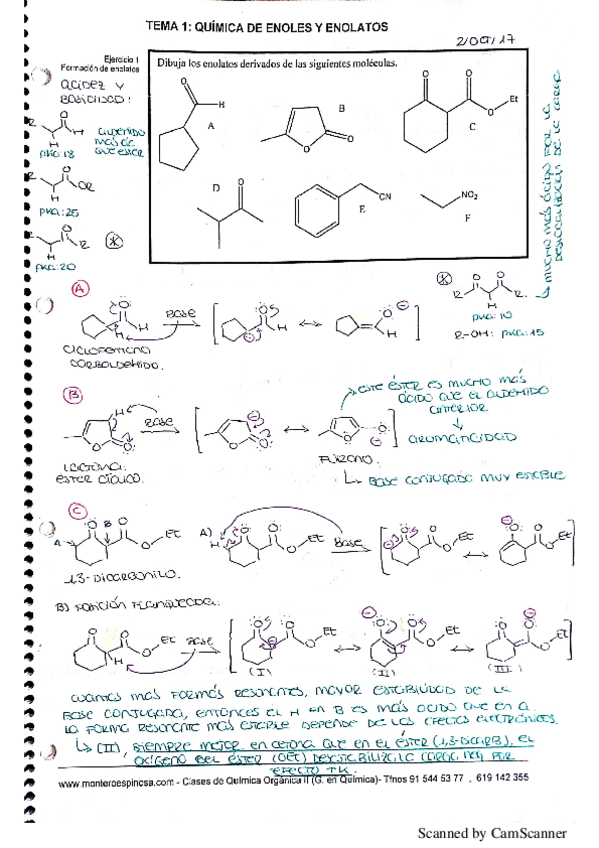 TEMA 1: QUÍMICA DE ENOLES Y ENOLATOS
2/OCT/17
Ejercicio 1
Formación de enolatos
Dibuja los enolatos derivados de las siguientes moléculas.
ACIDEZ Y
BASICIDAD:
H
A
B
O
O
O
Et
C
R
H
H
pKa: 18
ALDEHÍDO
MÁS ÁC.
QUE ÉSTER
R
OR
H
pKa: 25
R
R
H
pKa: 20
D
E
CN
F
NO2
MUCHO MÁS ÁCIDO POR LA
DESLOCALIZACIÓN DE LA CARGA
A
BASE
CICLOPENTANO
CARBALDEHIDO.
R
R
H
pKa: 10
R-OH: pKa: 15
B
BASE
LACTONA:
ÉSTER CÍCLICO.
FURANO.
ESTE ÉSTER ES MUCHO MÁS
ÁCIDO QUE EL ALDEHIDO
ANTERIOR
AROMATICIDAD
BASE CONJUGADA MUY ESTABLE
C
A
B
OEt
A)
H
OEt
Base
OEt
OEt
1,3-DICARBONILO.
B) POSICIÓN FLANQUEADA:
H
O
Et
BASE
(I)
(II)
(III)
CUANTAS MÁS FORMAS RESONANTES, MAYOR ESTABILIDAD DE LA
BASE CONJUGADA, ENTONCES EL H EN B ES MÁS ÁCIDO QUE EN A.
LA FORMA RESONANTE MÁS ESTABLE DEPENDE DE LOS EFECTOS ELECTRÓNICOS.
(II), SIEMPRE MEJOR EN CETONA QUE EN EL ÉSTER (1,3-DICARB), EL
OXÍGENO DEL ÉSTER (OEt) DESESTABILIZA LA CARGA NEG. POR
EFECTO +K.
www.monteroespinosa.com - Clases de Química Orgánica II (G. en Química)- Tfnos 91 544 53 77 , 619 142 355
Scanned by CamScanner